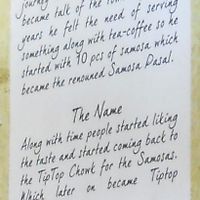 journey
became talk of the tow
years he felt the need of serving
something along with tea-coffee so he
started with 10 pcs of samosa which
became the renouned Samosa Dasal.
The Name
Along with time people started liking
the taste and started coming back to
the TipTop Chowk for the Samosas.
Which later on became Tiptop